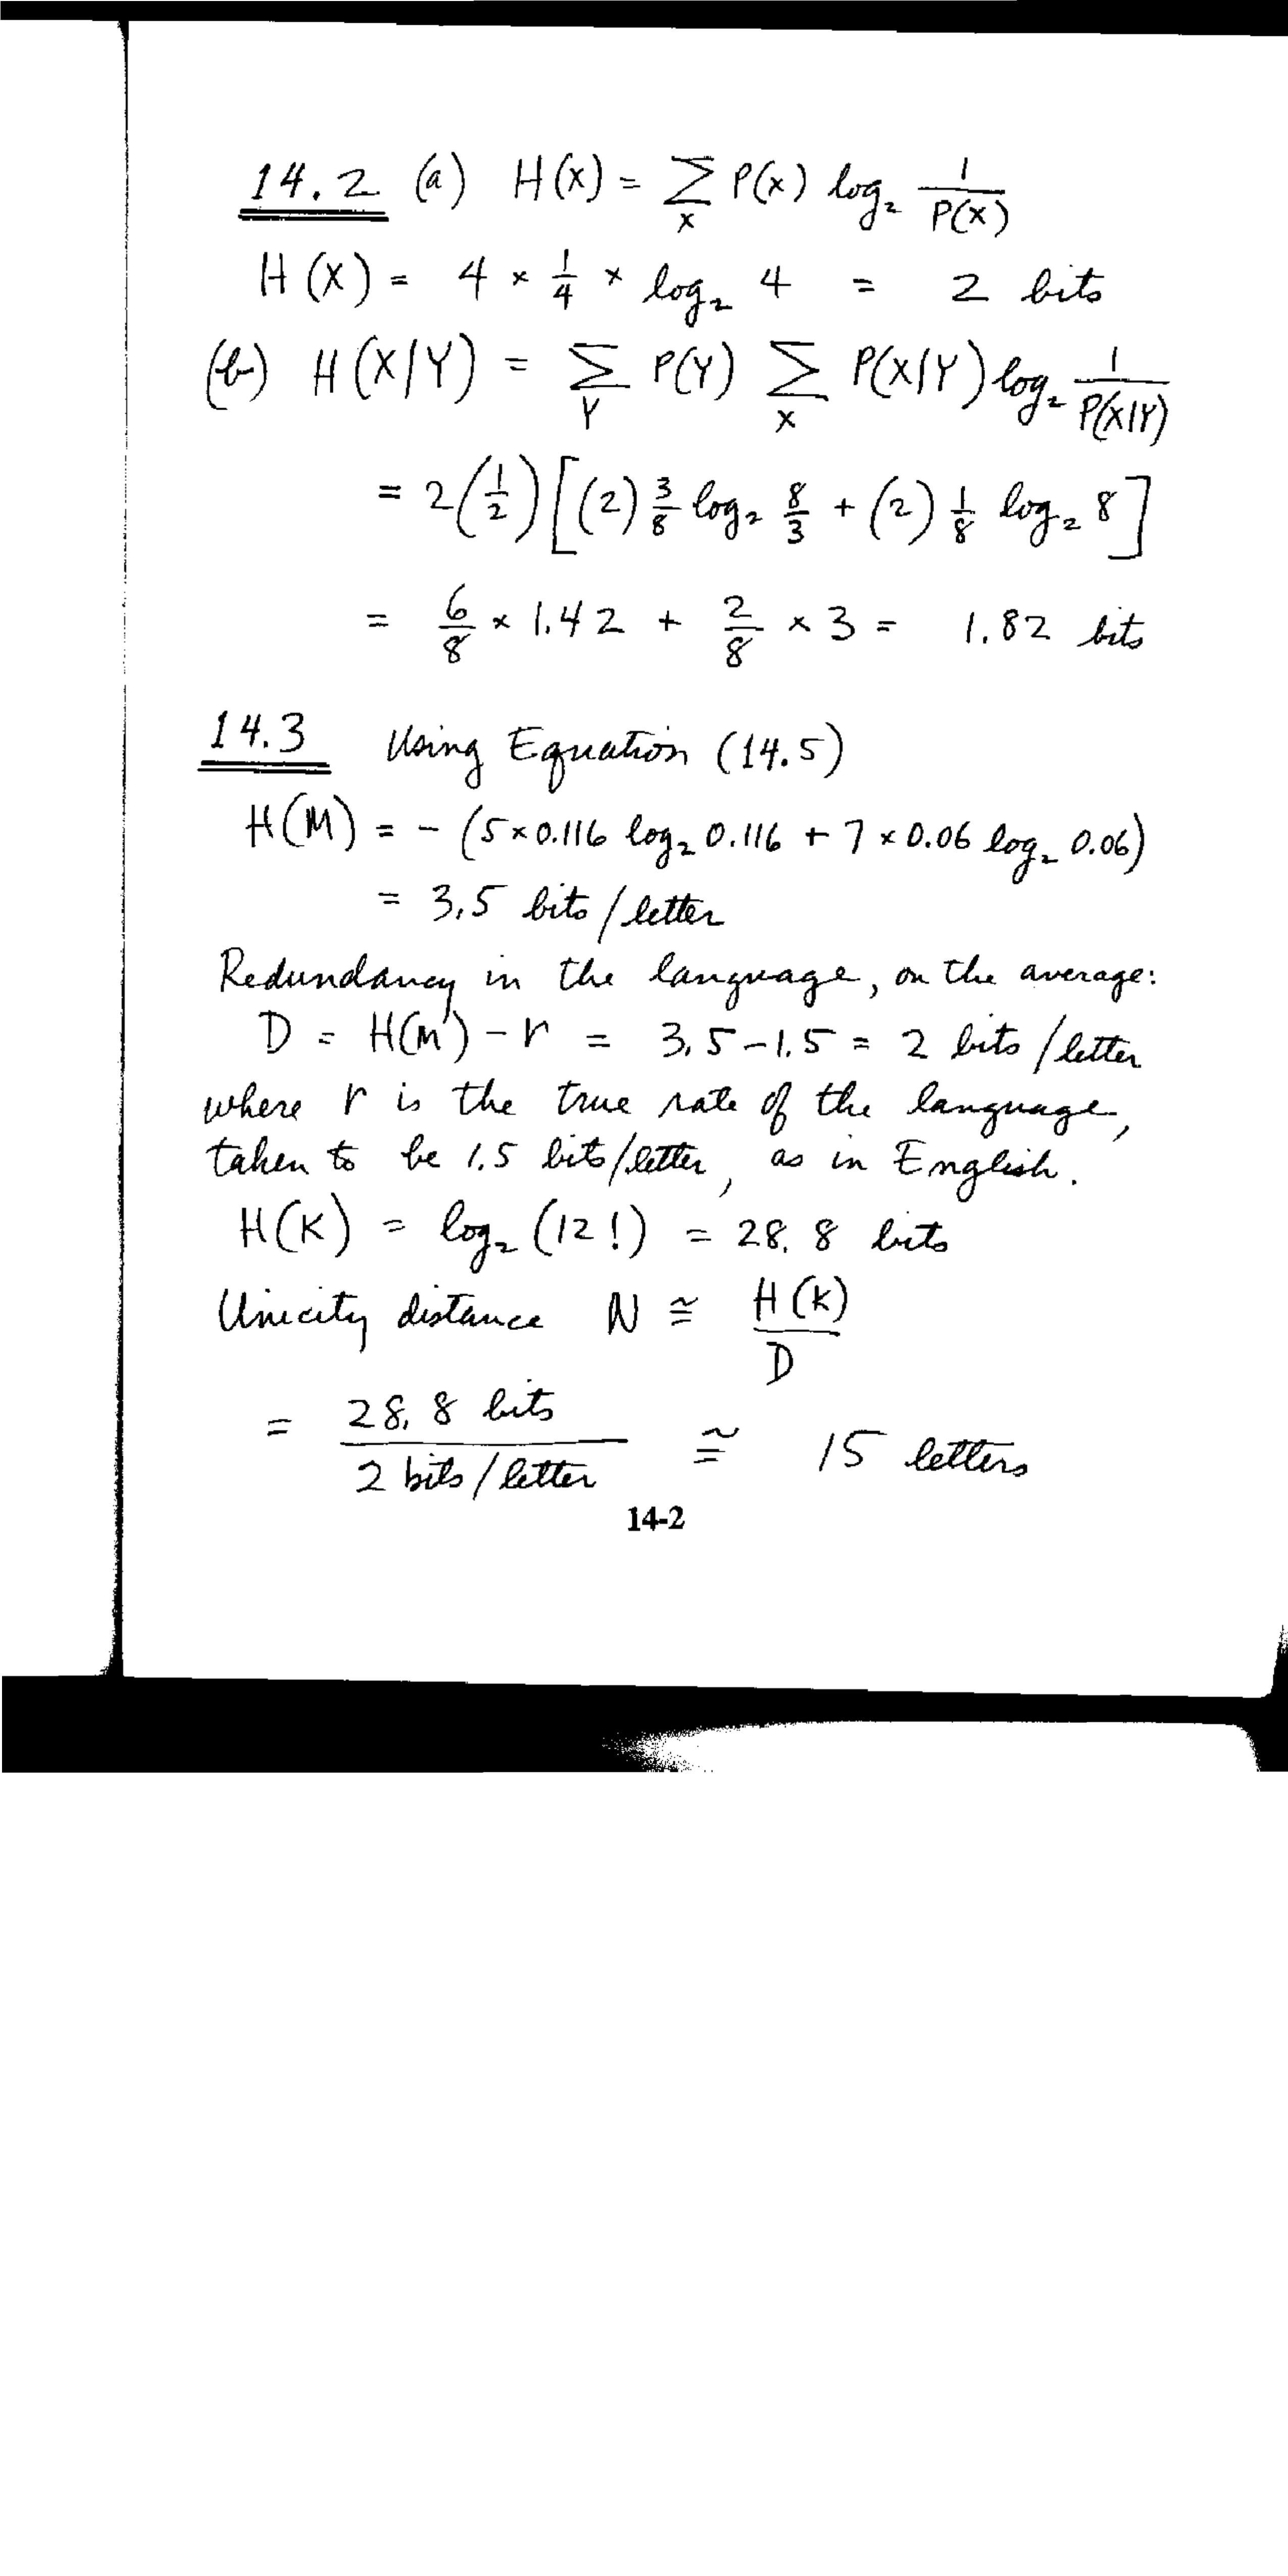 14.2 (a) H(X) = ∑_X P(X) log₂ 1/P(X)
H(X) = 4 × 1/4 × log₂ 4 = 2 bits
(b) H(X|Y) = ∑_Y P(Y) ∑_X P(X|Y) log₂ 1/P(X|Y)
= 2(1/2)[(2) 3/8 log₂ 8/3 + (2) 1/8 log₂ 8]
= 6/8 × 1.42 + 2/8 × 3 = 1.82 bits
14.3 Using Equation (14.5)
H(M) = - (5×0.116 log₂ 0.116 + 7 × 0.06 log₂ 0.06)
= 3.5 bits/letter
Redundancy in the language, on the average:
D = H(M) - r = 3.5 - 1.5 = 2 bits/letter
where r is the true rate of the language,
taken to be 1.5 bits/letter, as in English.
H(K) = log₂ (12!) = 28.8 bits
Unicity distance N ≅ H(K)/D
= 28.8 bits / 2 bits/letter ≅ 15 letters
14-2